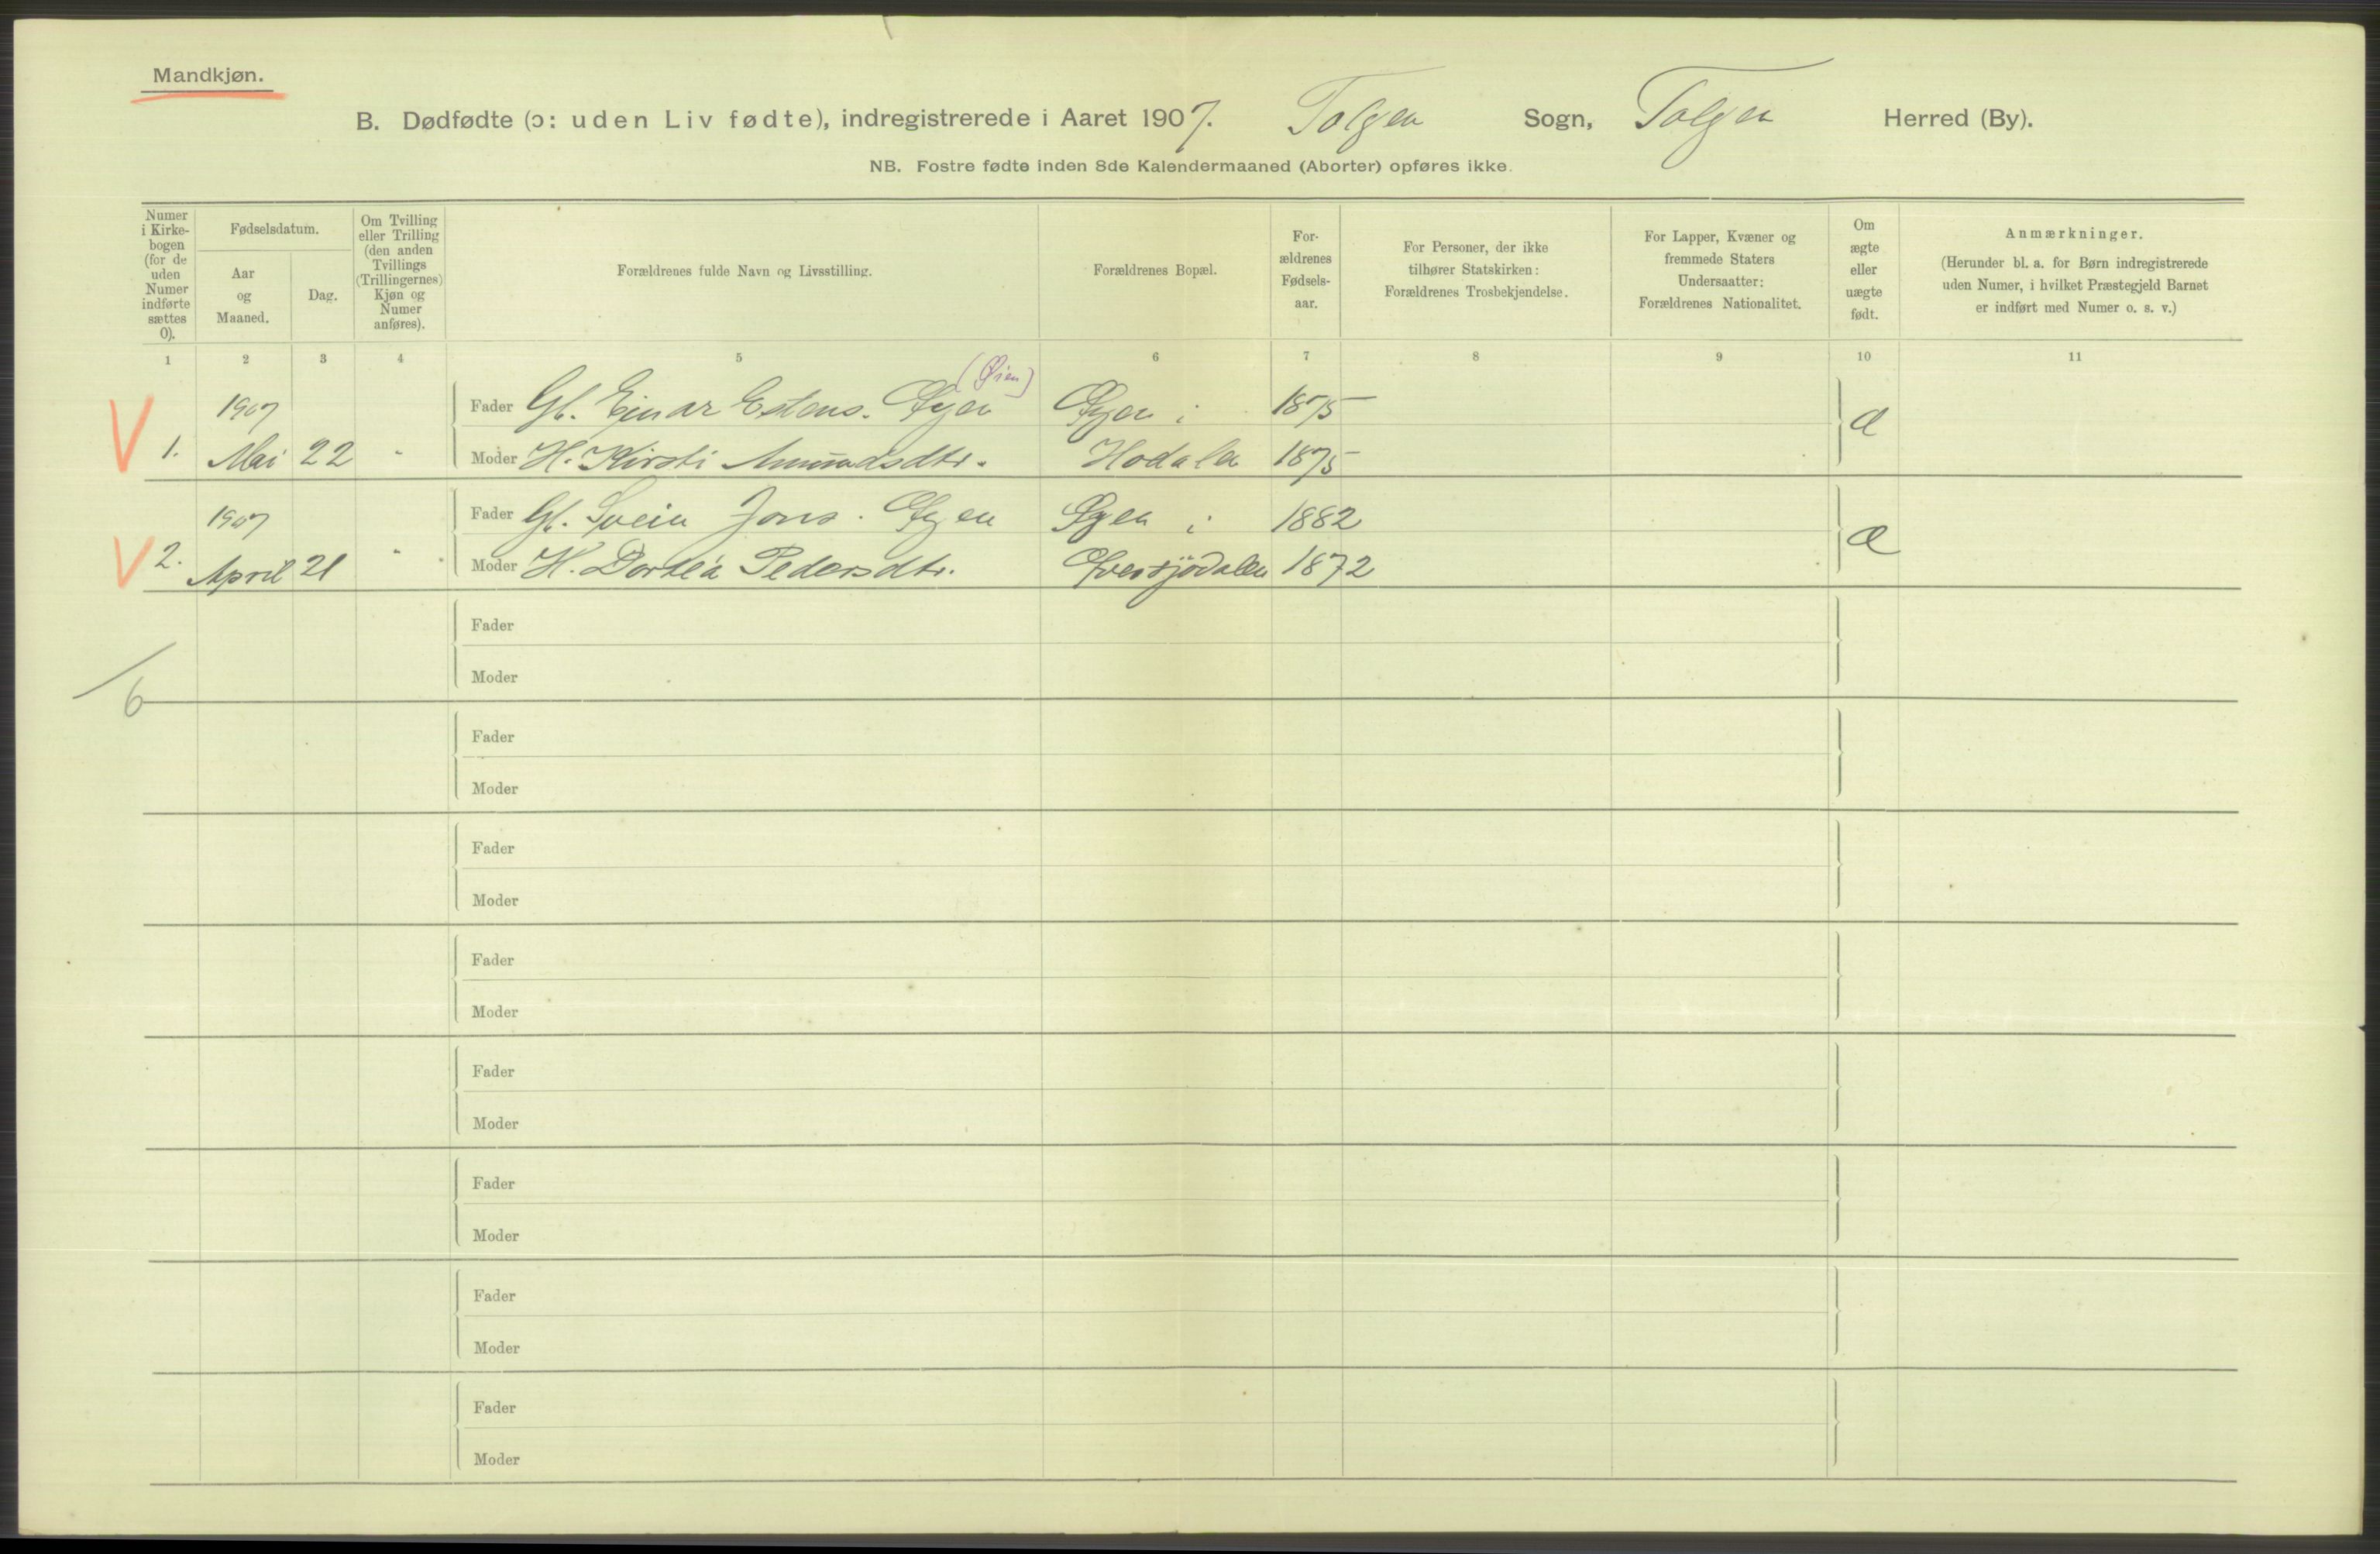 Mandkjøn.
B. Dødfødte (ɔ: uden Liv fødte), indregistrerede i Aaret 1907. Tolgen Sogn, Tolgen Herred (By).
NB. Fostre fødte inden 8de Kalendermaaned (Aborter) opføres ikke.
Numer
i Kirke-
bogen
(for de
uden
Numer
indførte
sættes
0).
Fødselsdatum.
Aar
og
Maaned.
Dag.
Om Tvilling
eller Trilling
(den anden
Tvillings
(Trillingernes)
Kjøn og
Numer
anføres).
Forældrenes fulde Navn og Livsstilling.
Forældrenes Bopæl.
For-
ældrenes
Fødsels-
aar.
For Personer, der ikke
tilhører Statskirken:
Forældrenes Trosbekjendelse.
For Lapper, Kvæner og
fremmede Staters
Undersaatter:
Forældrenes Nationalitet.
Om
ægte
eller
uægte
født.
Anmærkninger.
(Herunder bl. a. for Børn indregistrerede
uden Numer, i hvilket Præstegjeld Barnet
er indført med Numer o. s. v.)
1 2 3 4 5 6 7 8 9 10 11
(Øien)
1907 Fader Gb. Ejnar Estens. Øyen Øyen i 1875
V 1. Mai 22 " Moder H. Kirsti Amundsdtr. Hodalen 1875 æ
1907 Fader Gb. Svein Jons. Øyen Øyen i 1882
V 2. April 21 " Moder H. Dortea Pedersdtr. Øversjødalen 1872 æ
Fader
Moder
6
Fader
Moder
Fader
Moder
Fader
Moder
Fader
Moder
Fader
Moder
Fader
Moder
Fader
Moder